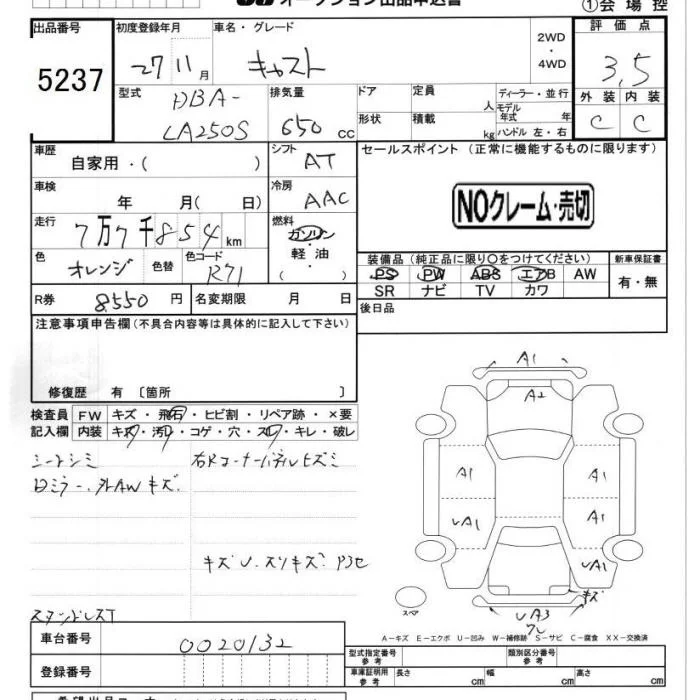 オークション出品申込書
①会場控
出品番号
5237
初度登録年月
27 11月
車名・グレード
キャスト
2WD
・
4WD
評価点
3.5
外装 内装
C C
型式
DBA-
LA250S
排気量
650 cc
ドア
定員
人
形状
積載
kg
ディーラー・並行
モデル
年式 年
ハンドル 左・右
車歴
自家用・( )
シフト
AT
セールスポイント (正常に機能するものに限ります)
NOクレーム・売切
車検
年 月( 日)
冷房
AAC
走行
7万7千854km
燃料
ガソリン
・
軽油
・
( )
色
オレンジ
色替
色コード
R71
装備品 (純正品に限り○をつけてください)
PS PW ABS エアB AW
SR ナビ TV カワ
新車保証書
有・無
R券 8.550 円
名変期限 月 日
後日品
注意事項申告欄(不具合内容等は具体的に記入して下さい)
修復歴 有〔箇所 〕
検査員
記入欄
FW キズ・飛石・ヒビ割・リペア跡・×要
内装 キズ・汚レ・コゲ・穴・スレ・キレ・破レ
シートシミ
右Rコーナーパネルヒズミ
ロミラー.外AWキズ.
キズU.スリキズ.
スタンドレスT
A1
A2
A1
A1
UA1
A1
UA1
キズ
UA3
ワレ
スペア
A－キズ E－エクボ U－凹み W－補修跡 S－サビ C－腐食 XX－交換済
車台番号
0020132
登録番号
型式指定番号
参考
類別区分番号
参考
車庫証明用
参考
長さ cm
幅 cm
高さ cm